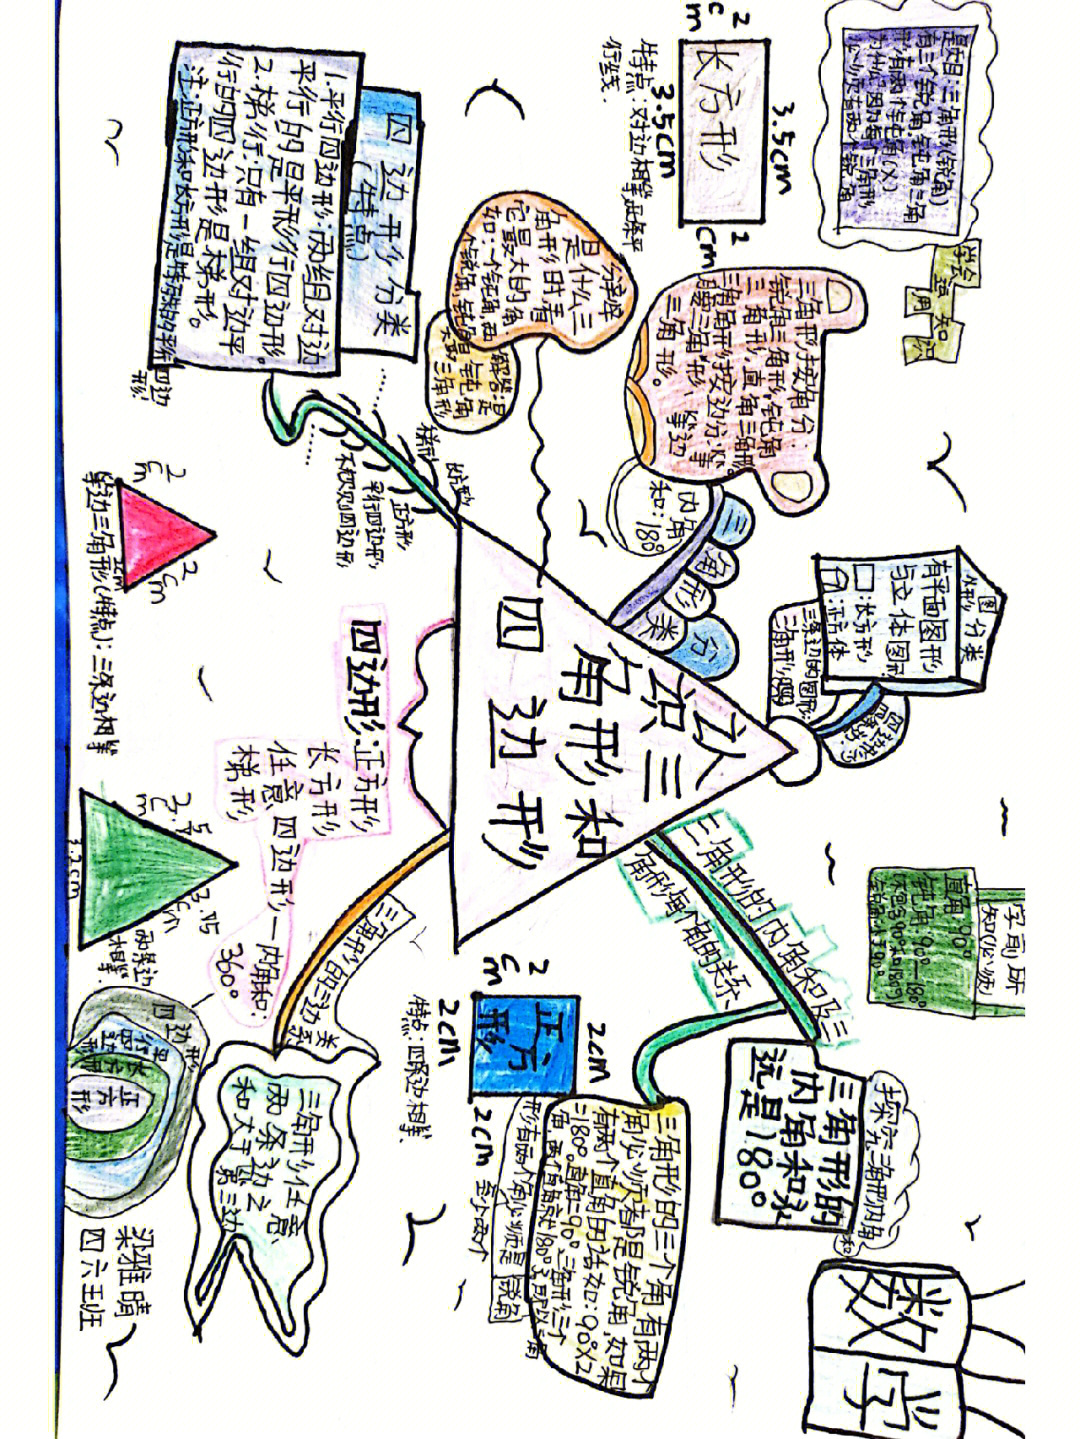 数学
认识三
角形和
四边形
学会运用知识
是女目:三角形(锐角)
有三个锐角,钝角三角
形有两个钝角(X)
为什么?因为每个三角形
至少要有两个锐角
图形分类
有平面图形
与立体图形
长方形
:正方体
三条边的图形:
三角形
四边形
三角形分类
内角
和:180°
三角形按角分:
锐角三角形,钝角
三角形,直角三角形。
三角形按边分:等
腰三角形、等边
三角形。
分辨
是什么三
角形时看
它最大的角
解答:是
钝角
三角形
2cm
长方形
3.5cm
3.5cm
2cm
特点:对边相等且平
行线
四边形分类
(特点)
1.平行四边形:两组对边
平行的是平形行四边形。
2.梯行:只有一组对边平
行的四边形是梯形。
注:正方形和长方形是特殊的平行四边
形
梯形
正方形
平行四边形
不规则四边形
四边形:正方形
长方形
任意四边形—内角和:
梯形
360°
2cm
2cm
2cm
等边三角形(特点):三条边相等
3.5cm
3.15cm
3.2cm
两条边
相等
四边形
平行四边形
长方形
正方形
三角形的三边关系
三角形任意
两条边之
和大于第三边
三角形的内角和及三
角形每个角的关系
直角90°
钝角:90°—180°
(不包含90°和180°)
字前所
知(必须)
探究三角形内角
和
三角形的
内角和永
远是180°
三角形的三个角有两个
角必须都是锐角,如果
有两个直角的话如:90°X2
=180°
至少两个
形有两个角必须是锐角
2cm
正方形
2cm
2cm
2cm
特点:四条边相等
梁雅晴
四六王班